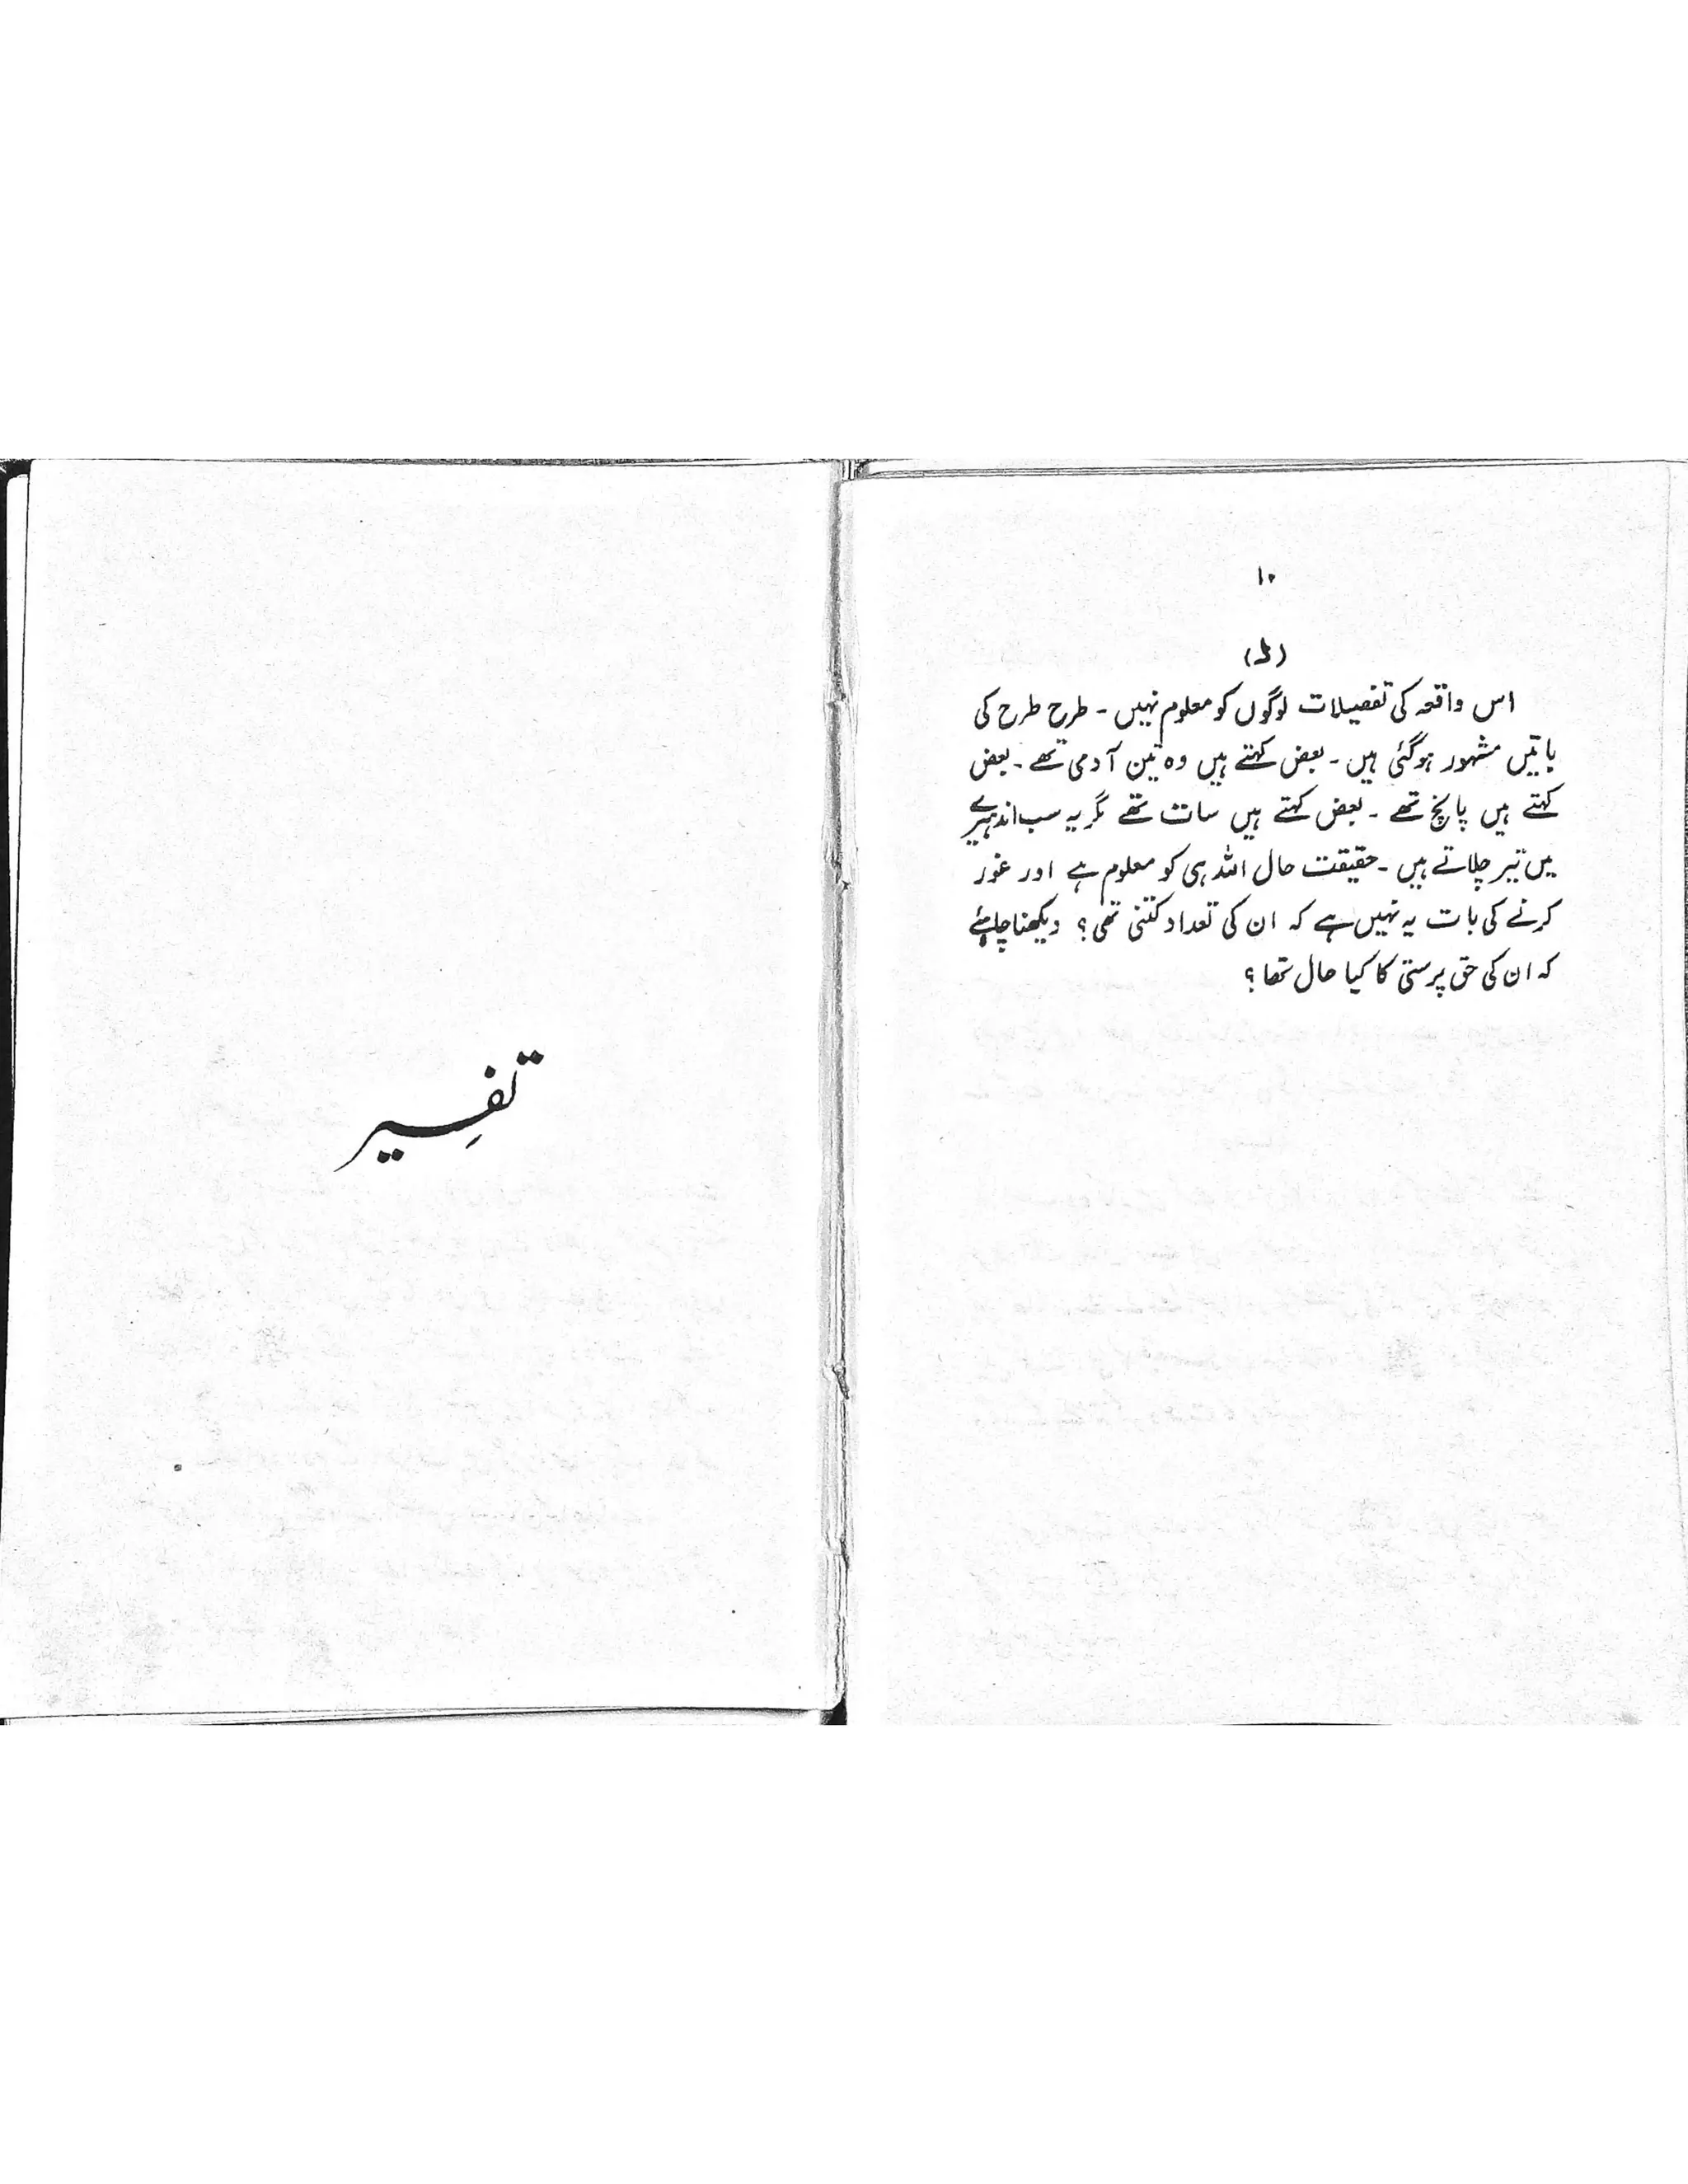 ۱۰
(ط)
اس واقعہ کی تفصیلات لوگوں کو معلوم نہیں ۔ طرح طرح کی
باتیں مشہور ہوگئی ہیں ۔ بعض کہتے ہیں وہ تین آدمی تھے ۔ بعض
کہتے ہیں پانچ تھے ۔ بعض کہتے ہیں سات تھے مگر یہ سب اندہیرے
میں تیر چلاتے ہیں ۔ حقیقت حال اللہ ہی کو معلوم ہے اور غور
کرنے کی بات یہ نہیں ہے کہ ان کی تعداد کتنی تھی؟ دیکھنا چاہئے
کہ ان کی حق پرستی کا کیا حال تھا؟
تفسِیر